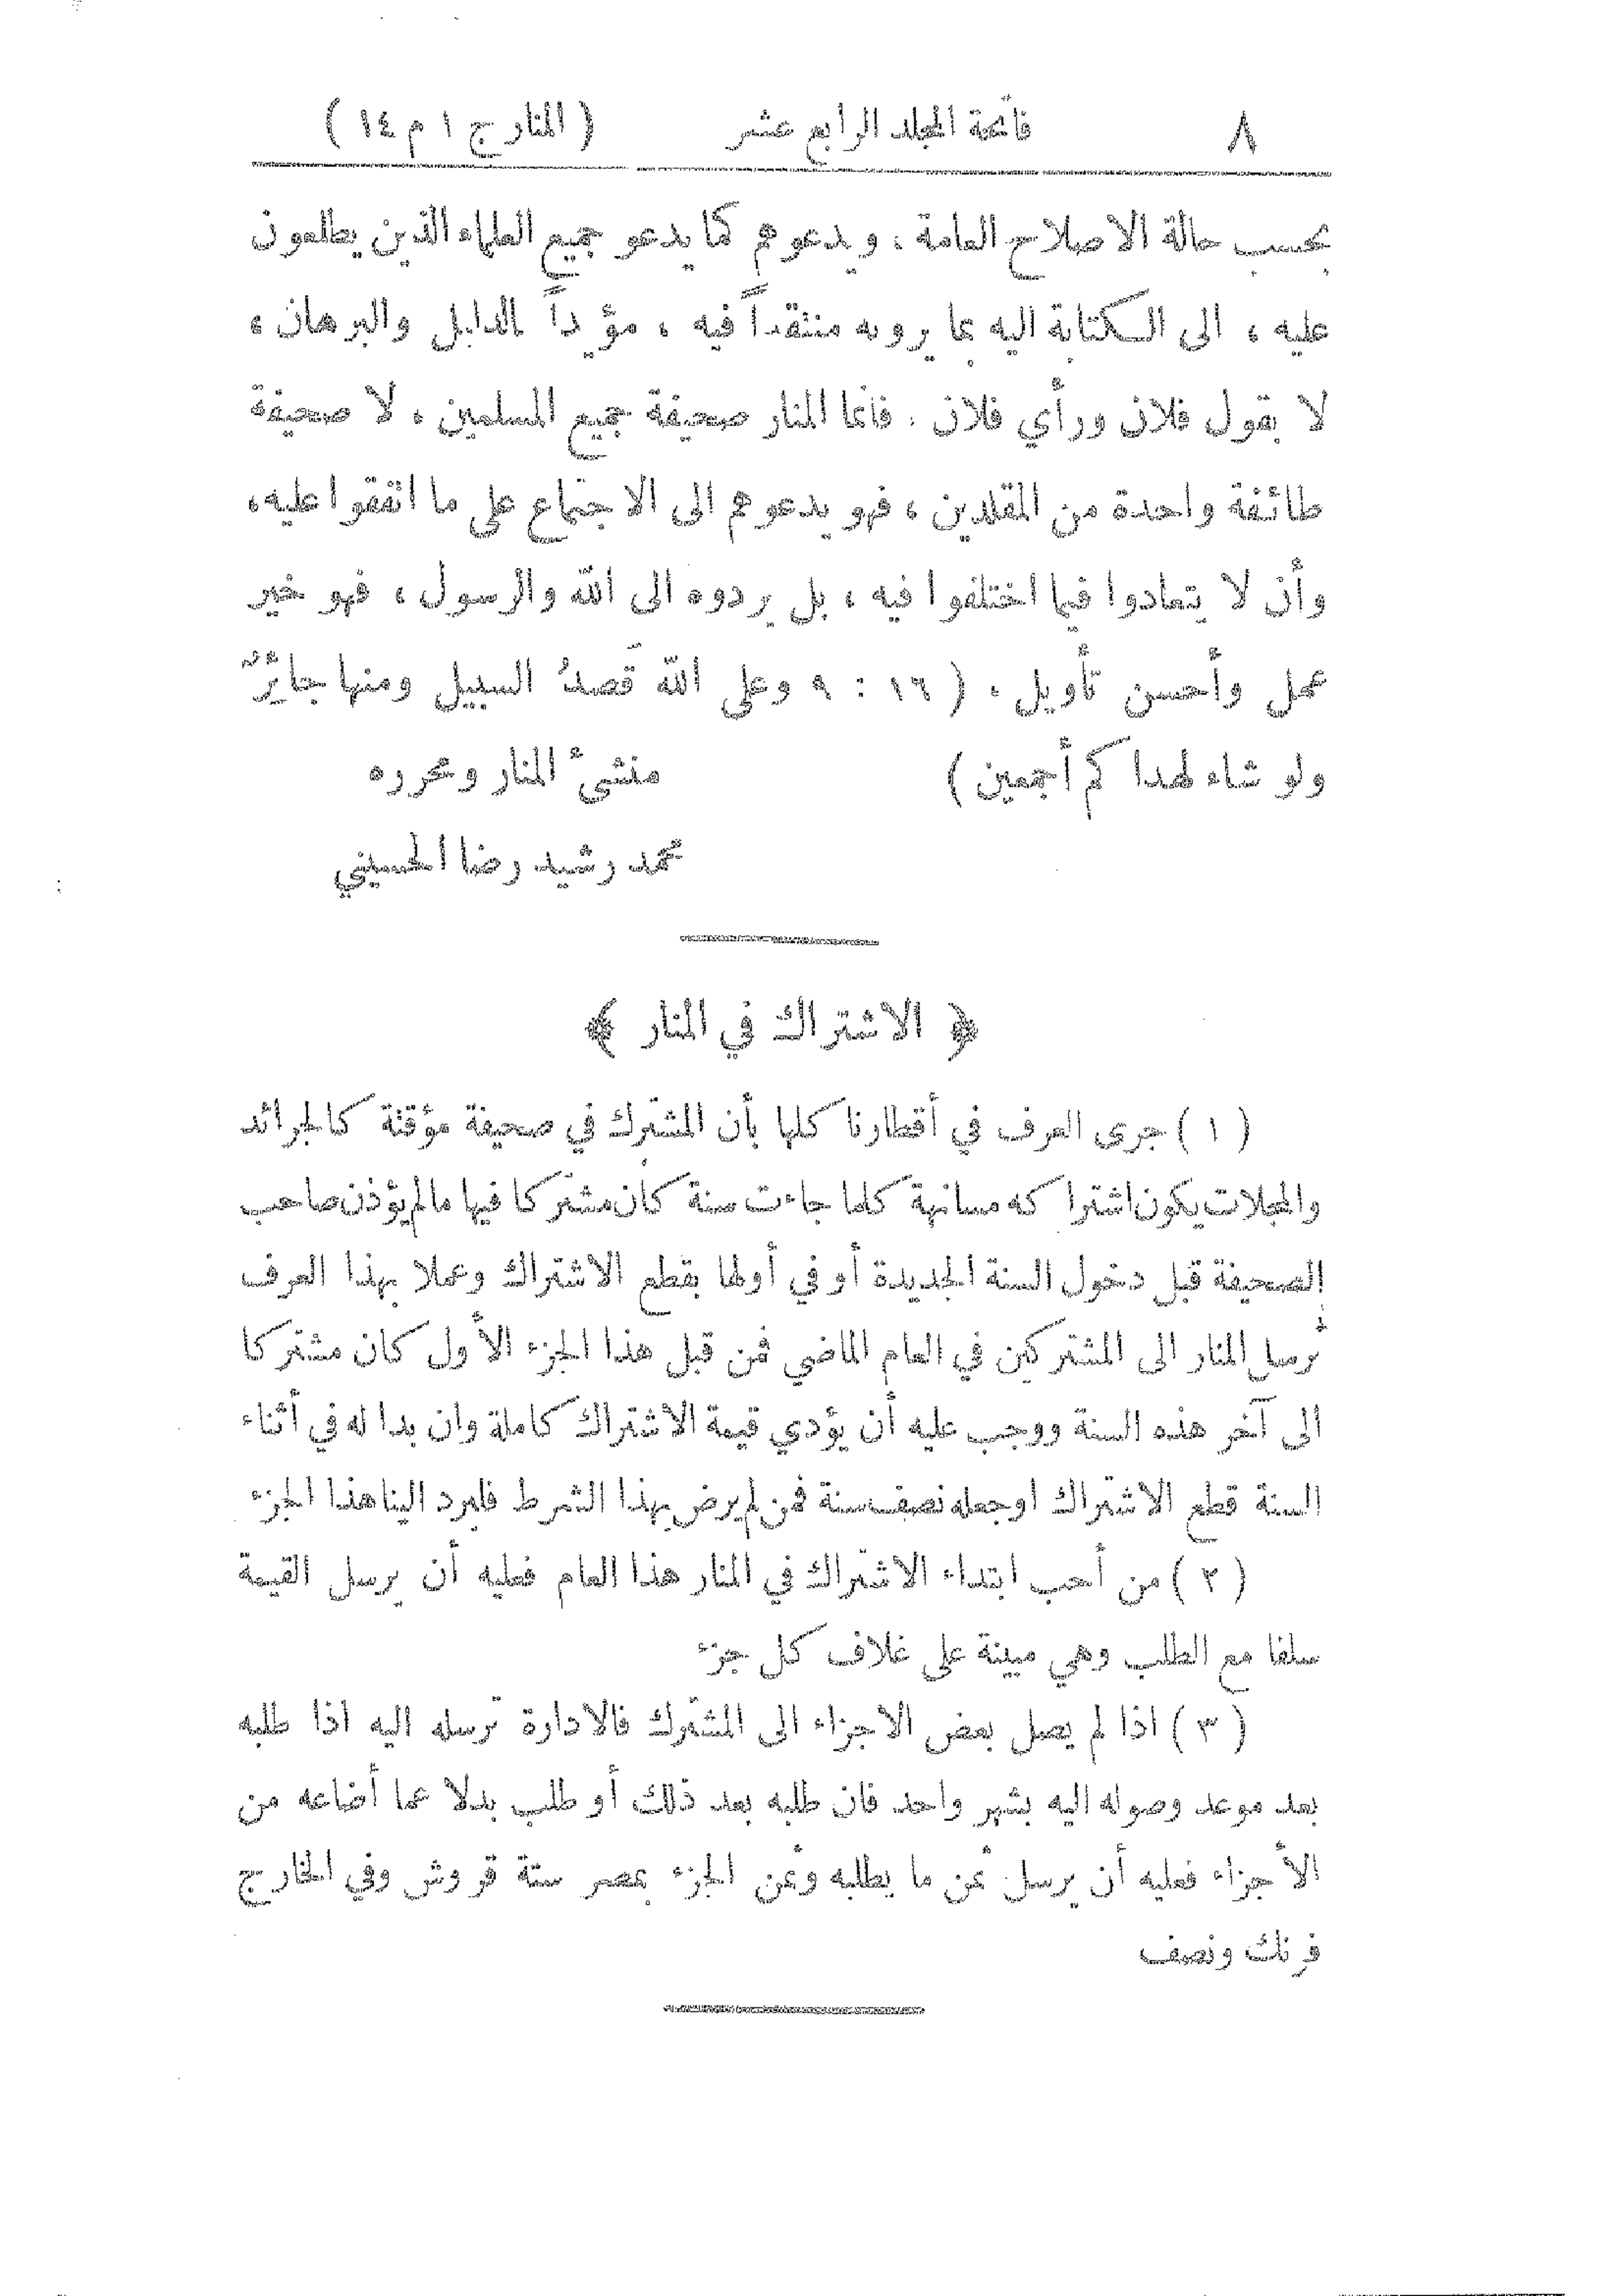 ٨ فاتحة المجلد الرابع عشر ( المنار ج ١ م ١٤ )
بحسب حالة الاصلاح العامة ، ويدعوهم كما يدعو جميع العلماء الذين يطلعون
عليه ، الى الكتابة اليه بما يرونه منتقداً فيه ، مؤيداً بالدليل والبرهان ،
لا بقول فلان ورأي فلان . فانما المنار صحيفة جميع المسلمين ، لا صحيفة
طائفة واحدة من المقلدين ، فهو يدعوهم الى الاجتماع على ما اتفقوا عليه ،
وأن لا يتعادوا فيما اختلفوا فيه ، بل يردوه الى الله والرسول ، فهو خير
عمل وأحسن تأويل . ( ١٦ : ٩ وعلى الله قَصدُ السبيل ومنها جائرٌ
ولو شاء لهداكم أجمعين )
منشئ المنار ومحرره
محمد رشيد رضا الحسيني
﴿ الاشتراك في المنار ﴾
( ١ ) جرى العرف في أقطارنا كلها بأن المشترك في صحيفة مؤقتة كالجرائد
والمجلات يكون اشتراكه مسانهة كلما جاءت سنة كان مشتركا فيها مالم يؤذن صاحب
الصحيفة قبل دخول السنة الجديدة أو في أولها بقطع الاشتراك وعملا بهذا العرف
نرسل المنار الى المشتركين في العام الماضي فمن قبل هذا الجزء الأول كان مشتركا
الى آخر هذه السنة ووجب عليه أن يؤدي قيمة الاشتراك كاملة وان بدا له في أثناء
السنة قطع الاشتراك اوجعله نصف سنة فمن لم يرض بهذا الشرط فليرد الينا هذا الجزء
( ٢ ) من أحب ابتداء الاشتراك في المنار هذا العام فعليه أن يرسل القيمة
سلفا مع الطلب وهي مبينة على غلاف كل جزء
( ٣ ) اذا لم يصل بعض الاجزاء الى المشترك فالادارة ترسله اليه اذا طلبه
بعد موعد وصوله اليه بشهر واحد فان طلبه بعد ذلك أو طلب بدلا عما أضاعه من
الأجزاء فعليه أن يرسل ثمن ما يطلبه وثمن الجزء بمصر ستة قروش وفي الخارج
فرنك ونصف